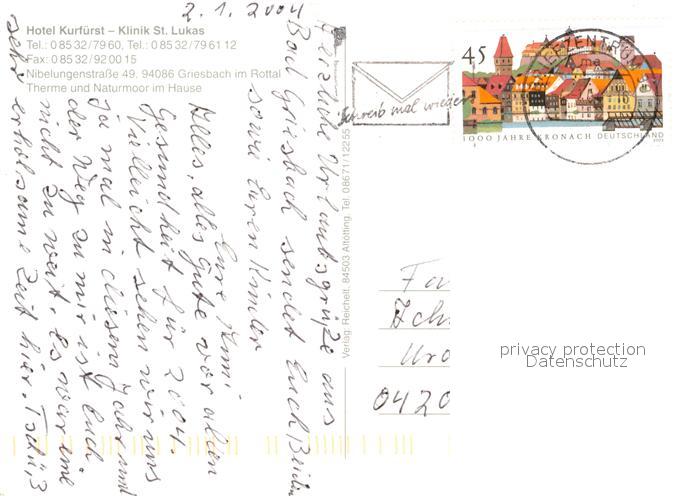 2.1.2004
Hotel Kurfürst – Klinik St. Lukas
Tel.: 0 85 32/79 60, Tel.: 0 85 32/79 61 12
Fax: 0 85 32/92 00 15
Nibelungenstraße 49, 94086 Griesbach im Rottal
Therme und Naturmoor im Hause
Herzliche Urlaubsgrüße aus
Bad Griesbach sendet Euch
sowie Euren Kinder
Eure
Alles, alles Gute vor allem
Gesundheit für 2004
Vielleicht sehen wir uns
ja mal in diesem Jahr und
der Weg zu mir ist Euch
nicht zu weit. Es war eine
sehr erholsame Zeit hier. Tschüß
Verlag: Reichelt, 84503 Altötting, Tel. 08671/12255
Schreib mal wieder
BRIEFZENTRUM
45
1000 JAHRE KRONACH DEUTSCHLAND
2003
Fa
Uro
0420
privacy protection
Datenschutz